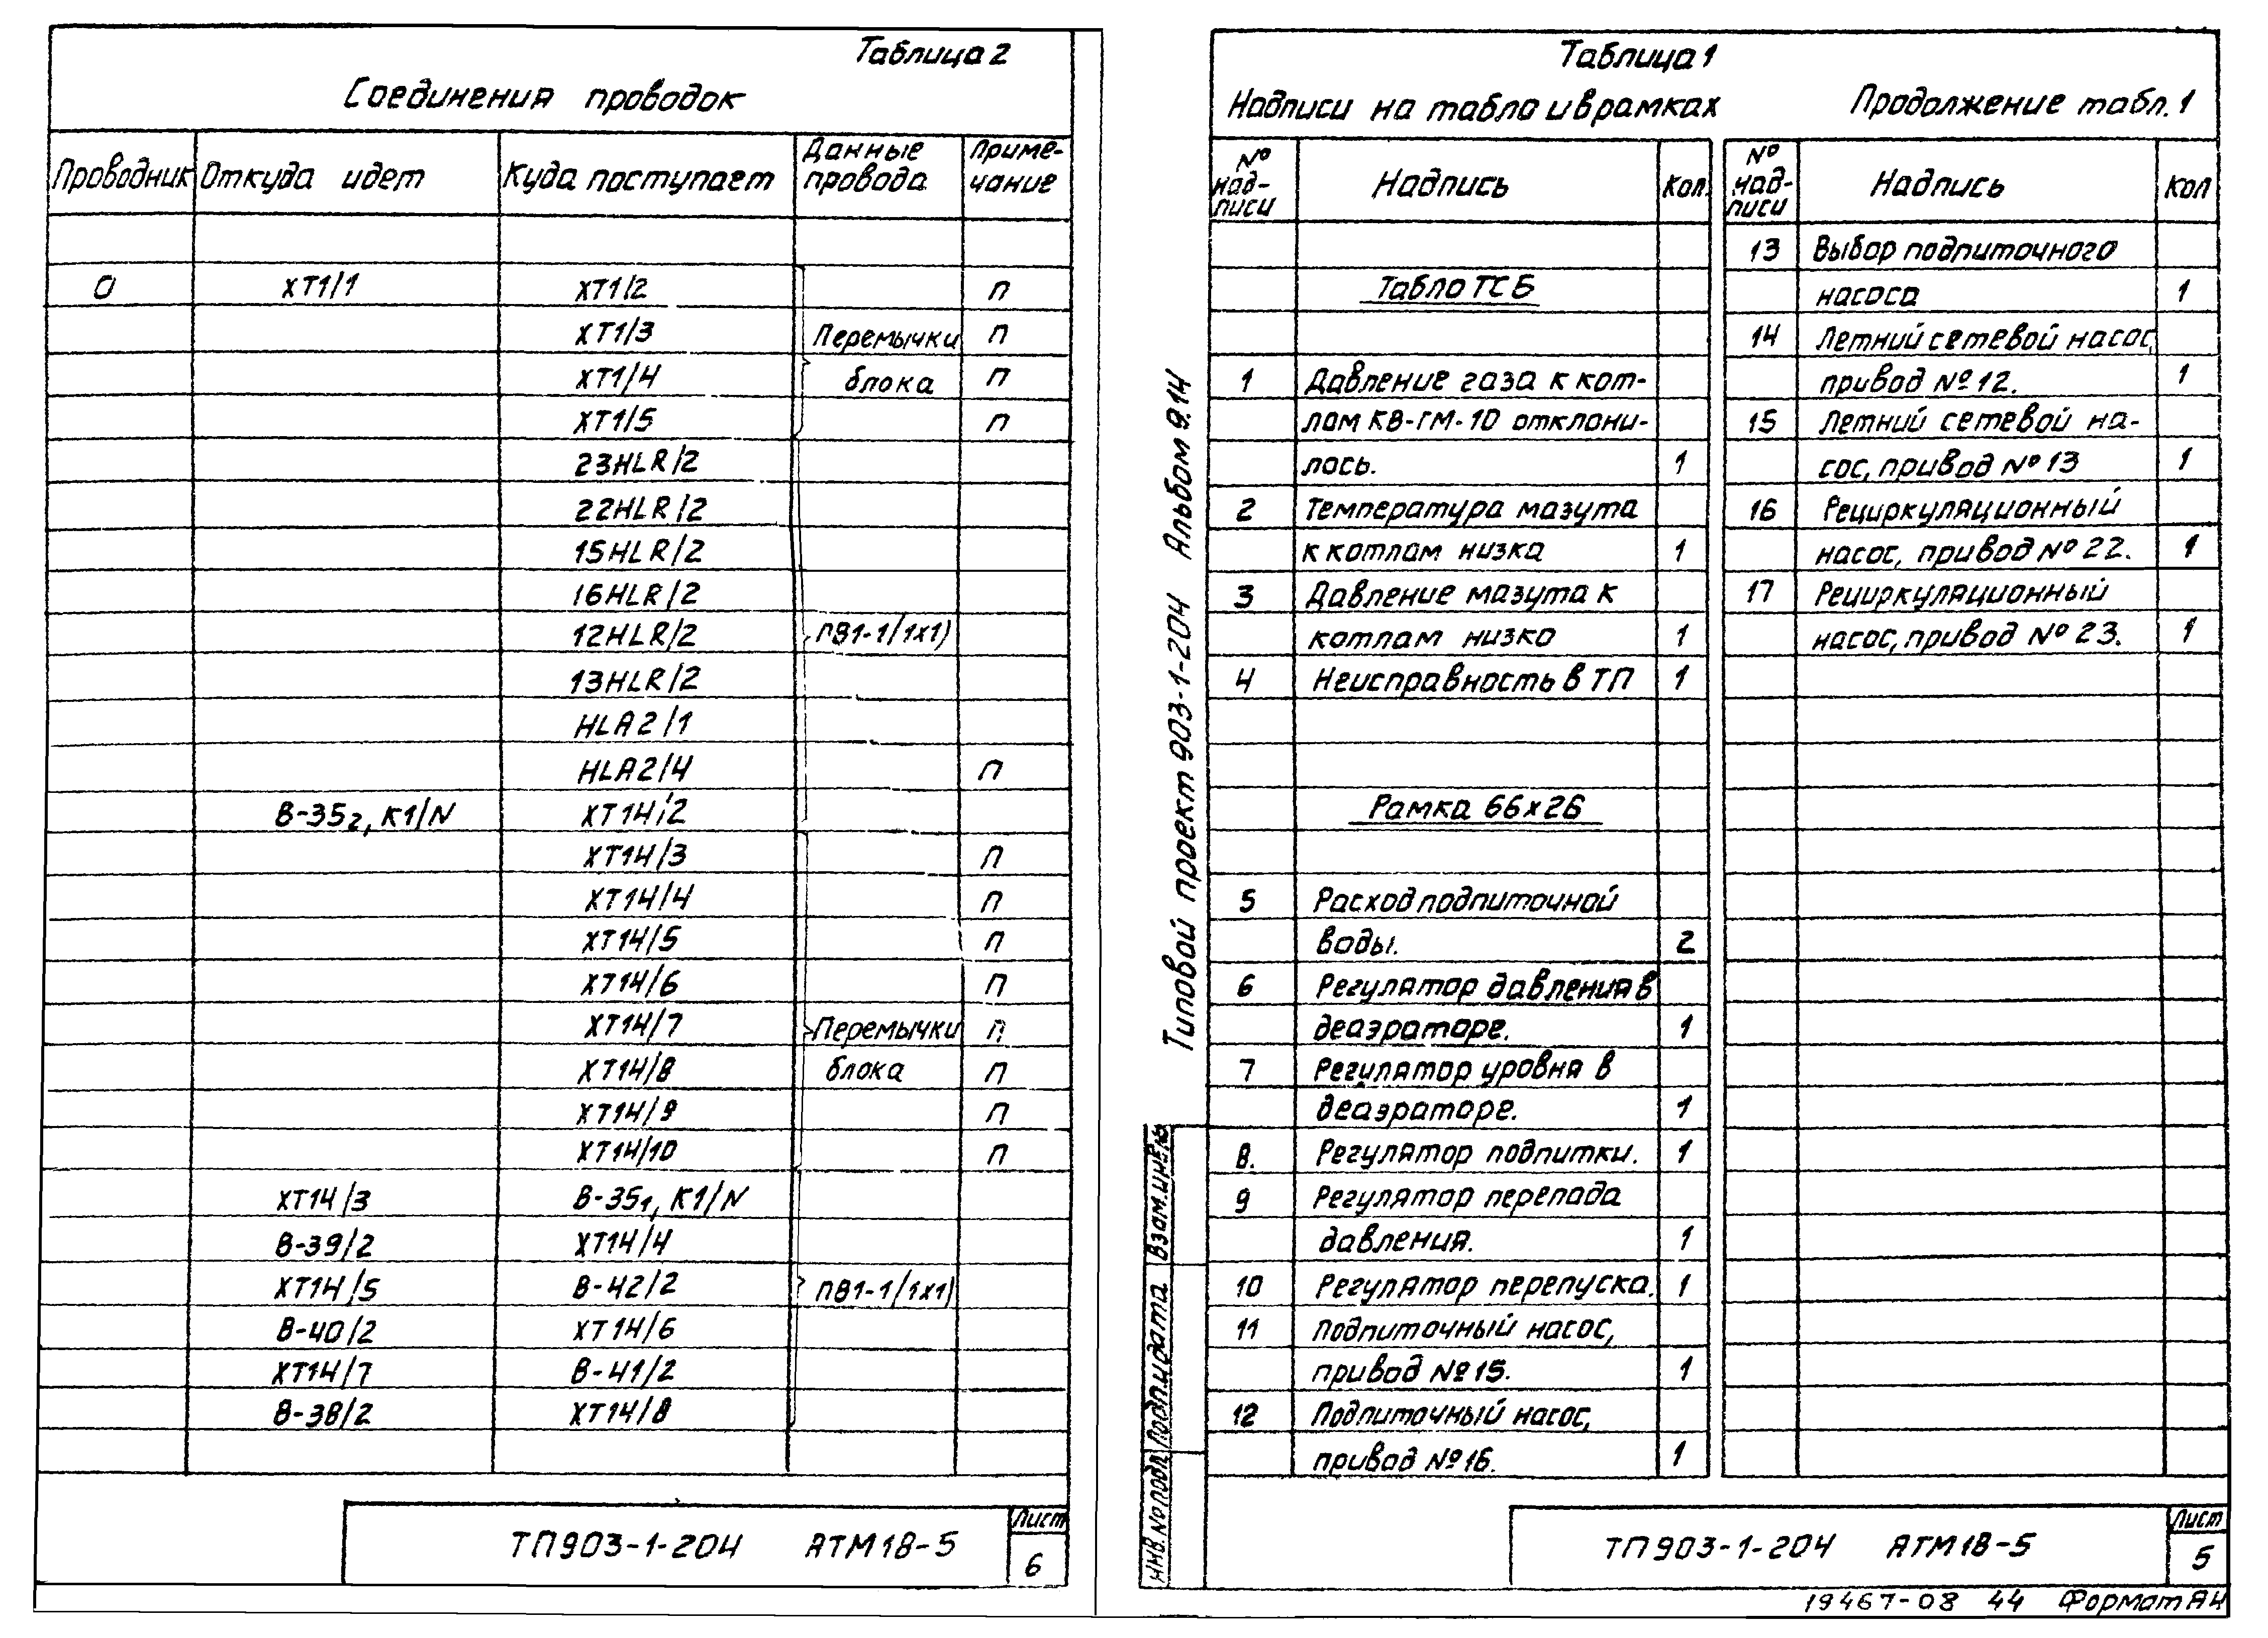 Таблица 2
Соединения проводок
Проводник Откуда идет Куда поступает Данные провода Приме-чание
0 XT1/1 XT1/2 п
XT1/3 Перемычки п
XT1/4 блока п
XT1/5 п
23HLR/2
22HLR/2
15HLR/2
16HLR/2
12HLR/2 ПВ1-1/1x1)
13HLR/2
HLA2/1
HLA2/4 п
В-35г, К1/N XT14/2
XT14/3 п
XT14/4 п
XT14/5 п
XT14/6 п
XT14/7 Перемычки п
XT14/8 блока п
XT14/9 п
XT14/10 п
XT14/3 В-351, К1/N
В-39/2 XT14/4
XT14/5 В-42/2 ПВ1-1/1x1)
В-40/2 XT14/6
XT14/7 В-41/2
В-38/2 XT14/8
ТП903-1-204 АТМ18-5
Лист
6
Типовой проект 903-1-204 Альбом 9.14
Взам.инв.№
Подп.и дата
Инв.№ подл.
Таблица 1
Надписи на табло и в рамках Продолжение табл. 1
№ над-писи Надпись Кол.
Табло ТСБ
1 Давление газа к кот-
лам КВ-ГМ-10 отклони-
лось. 1
2 Температура мазута
к котлам низка 1
3 Давление мазута к
котлам низко 1
4 Неисправность в ТП 1
Рамка 66x26
5 Расход подпиточной
воды. 2
6 Регулятор давления в
деаэраторе. 1
7 Регулятор уровня в
деаэраторе. 1
8. Регулятор подпитки. 1
9 Регулятор перепада
давления. 1
10 Регулятор перепуска. 1
11 Подпиточный насос,
привод №15. 1
12 Подпиточный насос,
привод №16. 1
№ над-писи Надпись Кол
13 Выбор подпиточного
насоса 1
14 Летний сетевой насос,
привод №12. 1
15 Летний сетевой на-
сос, привод №13 1
16 Рециркуляционный
насос, привод №22. 1
17 Рециркуляционный
насос, привод №23. 1
ТП903-1-204 АТМ18-5
Лист
5
19467-08 44 Формат А4